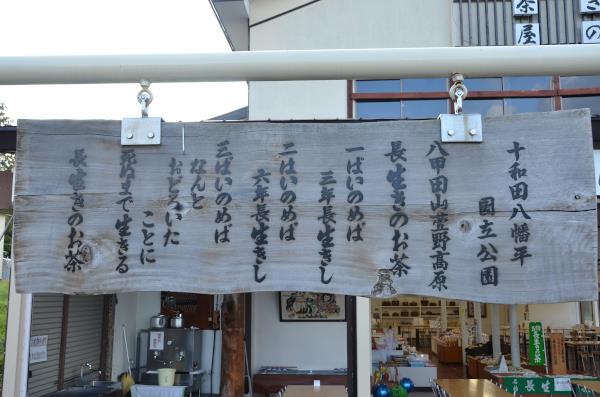 十和田八幡平
国立公園
八甲田山萱野高原
長生きのお茶
一ぱいのめば
三年長生きし
二はいのめば
六年長生きし
三ばいのめば
なんと
おどろいた
ことに
死ぬまで生きる
長生きのお茶
茶屋
きの
長生きのお茶
長生